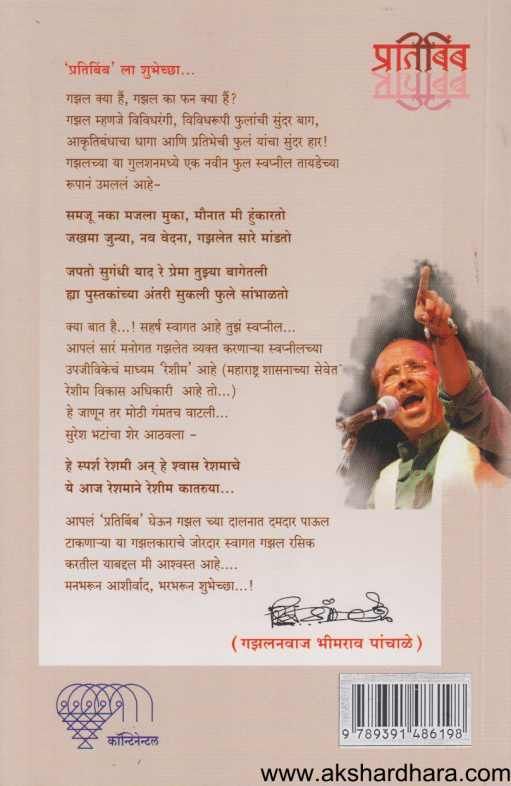 प्रतिबिंब
'प्रतिबिंब' ला शुभेच्छा...
गझल क्या हैं, गझल का फन क्या हैं?
गझल म्हणजे विविधरंगी, विविधरूपी फुलांची सुंदर बाग,
आकृतिबंधाचा धागा आणि प्रतिभेची फुलं यांचा सुंदर हार!
गझलच्या या गुलशनमध्ये एक नवीन फुल स्वप्नील तायडेच्या
रूपानं उमललं आहे-
समजू नका मजला मुका, मौनात मी हुंकारतो
जखमा जुन्या, नव वेदना, गझलेत सारे मांडतो
जपतो सुगंधी याद रे प्रेमा तुझ्या बागेतली
ह्या पुस्तकांच्या अंतरी सुकली फुले सांभाळतो
क्या बात है...! सहर्ष स्वागत आहे तुझं स्वप्नील...
आपलं सारं मनोगत गझलेत व्यक्त करणाऱ्या स्वप्नीलच्या
उपजीविकेचं माध्यम 'रेशीम' आहे (महाराष्ट्र शासनाच्या सेवेत
रेशीम विकास अधिकारी आहे तो...)
हे जाणून तर मोठी गंमतच वाटली...
सुरेश भटांचा शेर आठवला -
हे स्पर्श रेशमी अन् हे श्वास रेशमाचे
ये आज रेशमाने रेशीम कातरुया...
आपलं 'प्रतिबिंब' घेऊन गझल च्या दालनात दमदार पाऊल
टाकणाऱ्या या गझलकाराचे जोरदार स्वागत गझल रसिक
करतील याबद्दल मी आश्वस्त आहे....
मनभरून आशीर्वाद, भरभरून शुभेच्छा...!
(गझलनवाज भीमराव पांचाळे)
कॉन्टिनेन्टल
9 789391 486198
www.akshardhara.com